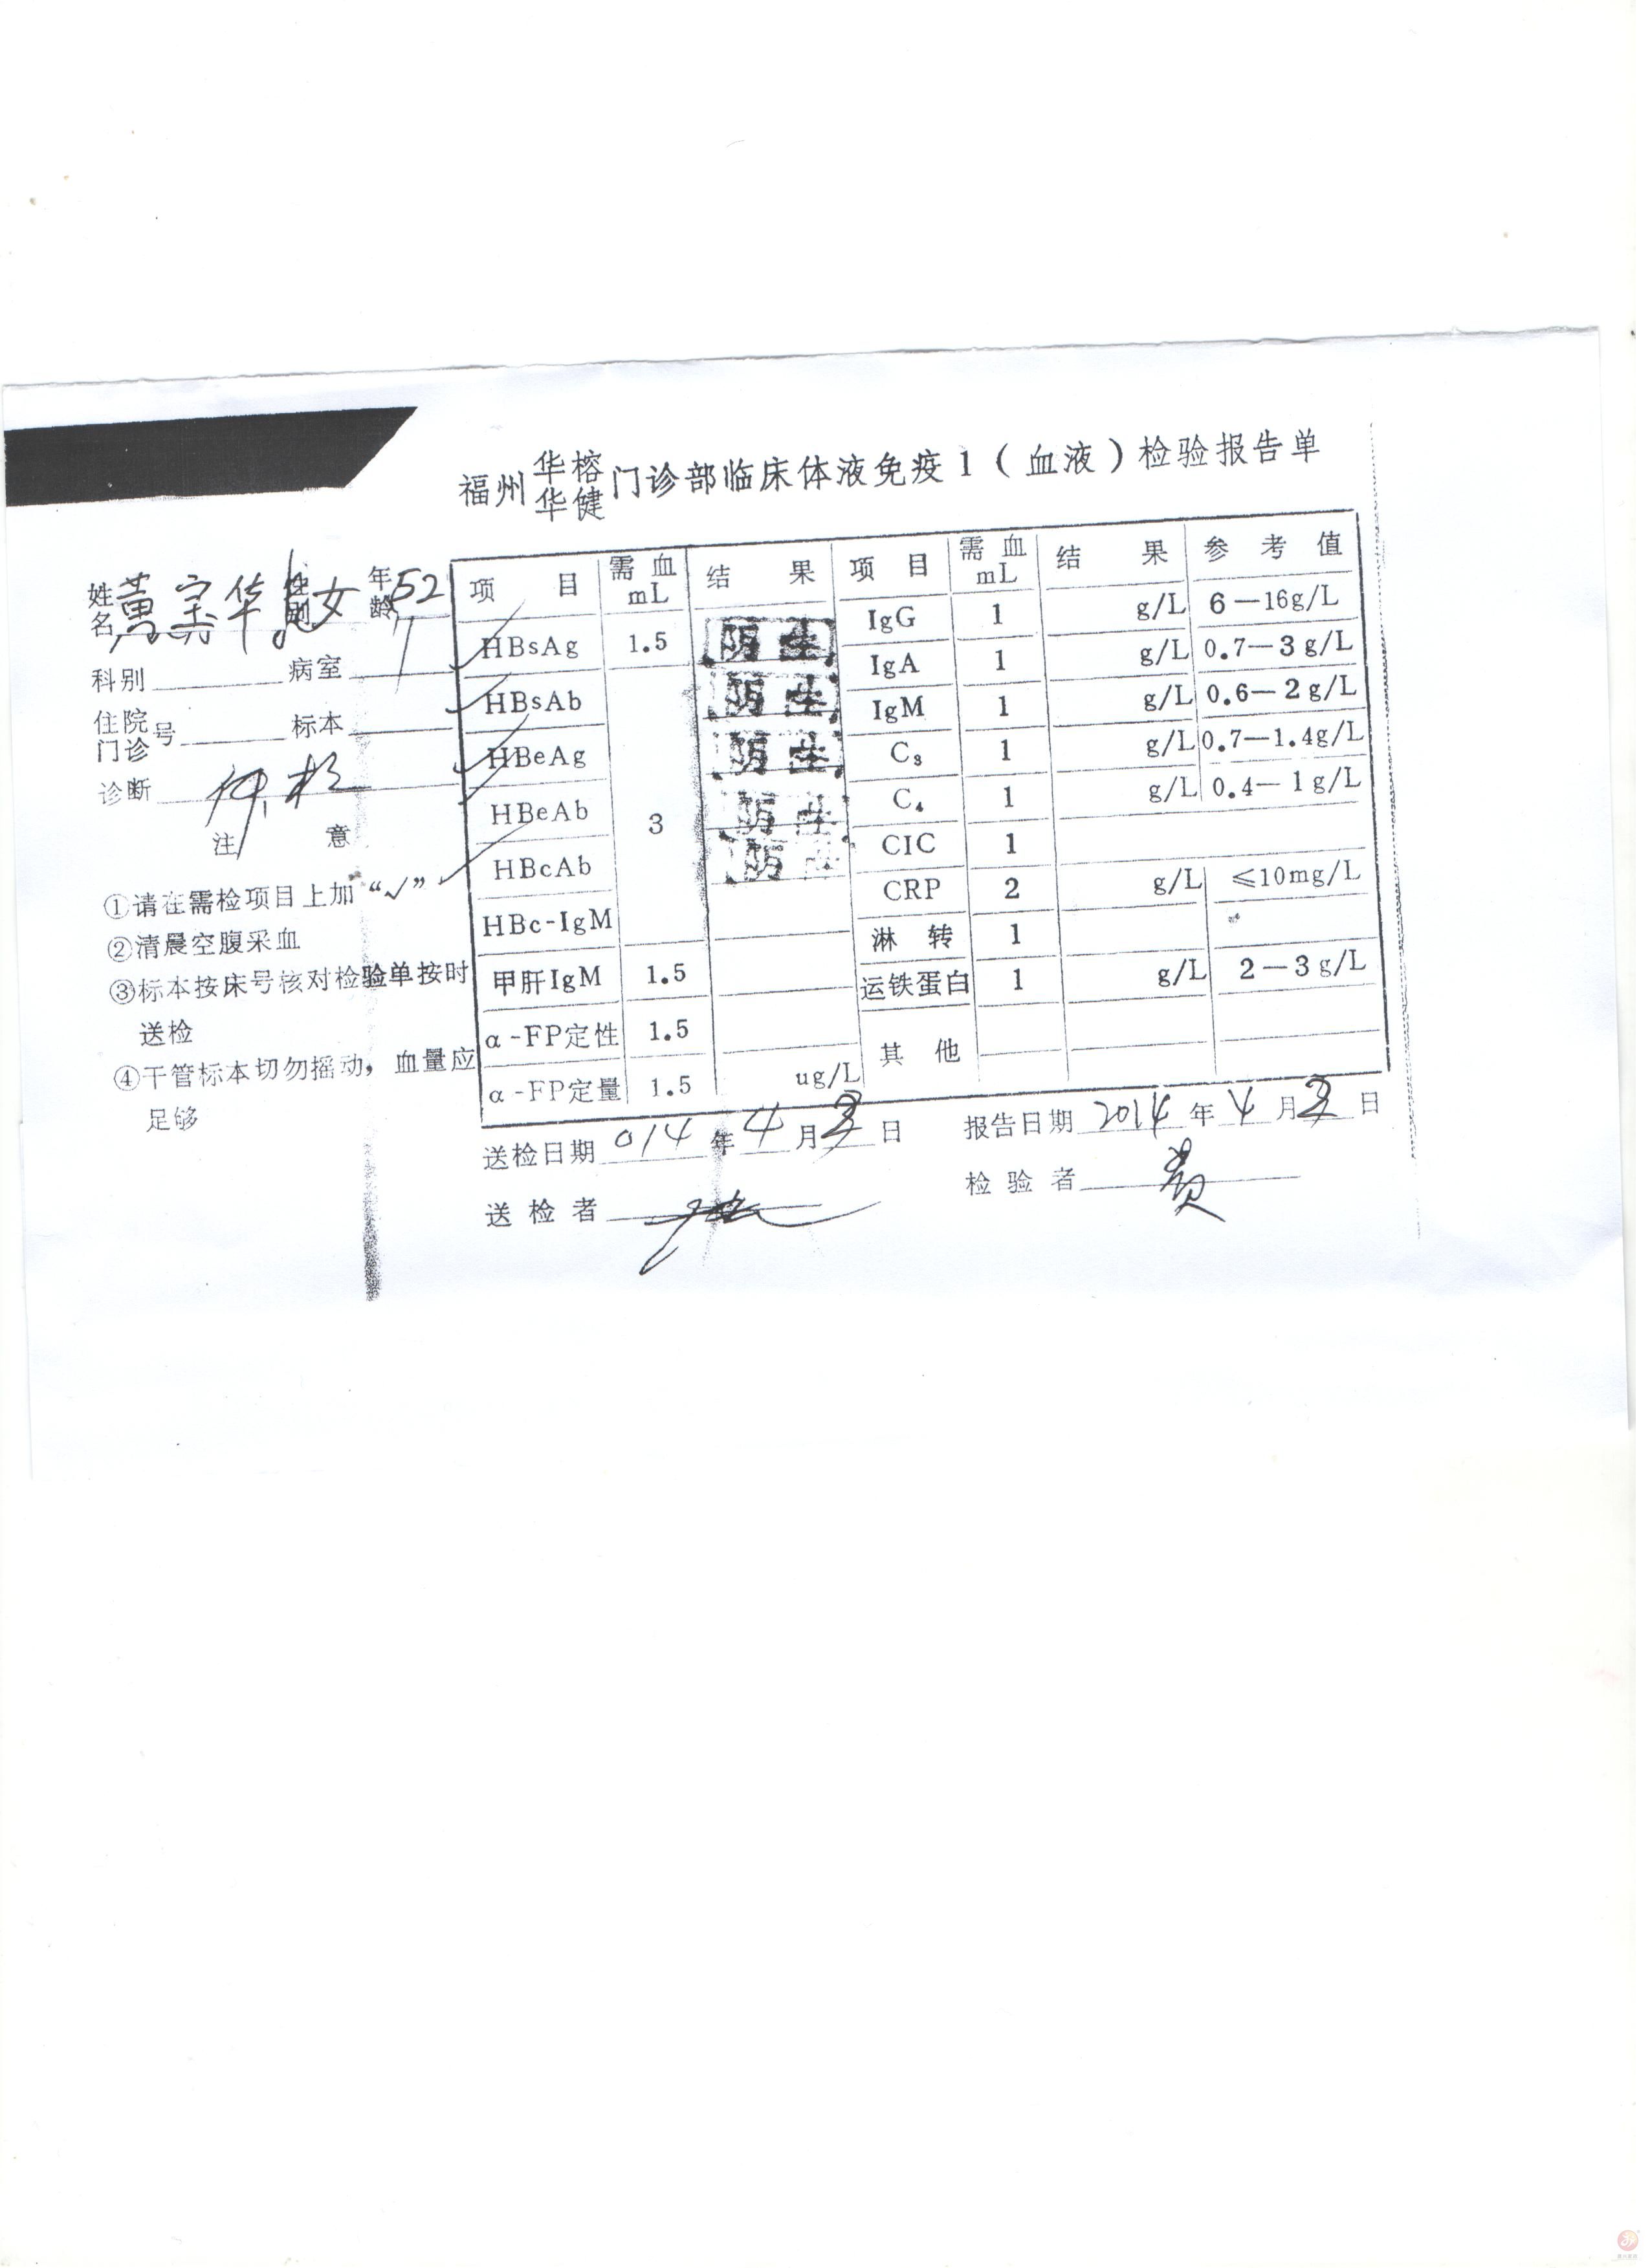 福州华榕华健门诊部临床体液免疫1（血液）检验报告单
姓名 黄 华 性别 女 年龄 52
科别 病室
住院门诊号 标本
诊断 体检
注 意
①请在需检项目上加“√”
②清晨空腹采血
③标本按床号核对检验单按时
送检
④干管标本切勿摇动，血量应
足够
项 目 需血mL 结 果 项 目 需血mL 结 果 参 考 值
HBsAg 1.5 阴性
HBsAb 3 阴性
HBeAg 阴性
HBeAb 阴性
HBcAb 阴
HBc-IgM
甲肝IgM 1.5
α-FP定性 1.5
α-FP定量 1.5 ug/L
IgG 1 g/L 6－16g/L
IgA 1 g/L 0.7－3g/L
IgM 1 g/L 0.6－2g/L
C₃ 1 g/L 0.7－1.4g/L
C₄ 1 g/L 0.4－1g/L
CIC 1
CRP 2 g/L ≤10mg/L
淋 转 1
运铁蛋白 1 g/L 2－3g/L
其 他
送检日期 014 年 4 月 日 报告日期 2014 年 4 月 日
送 检 者 检 验 者